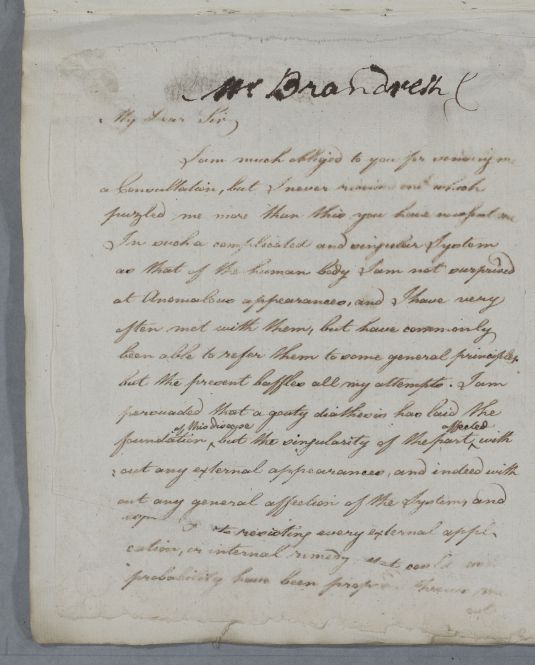 Mr Brandreth
My Dear Sir
I am much obliged to you for sending me
a Consultation, but I never received one which
puzzled me more than this you have now sent me
In such a complicated and singular System
as that of the human body I am not surprised
at Anomalous appearances, and I have very
often met with them, but have commonly
been able to refer them to some general principles,
but the present baffles all my attempts. I am
persuaded that a gouty diathesis has laid the
of this disease affected
foundation, but the singularity of the part, with
out any external appearances, and indeed with
out any general affection of the System, and
to resisting every external appli-
cation, or internal remedy, that could
probability have been proposed